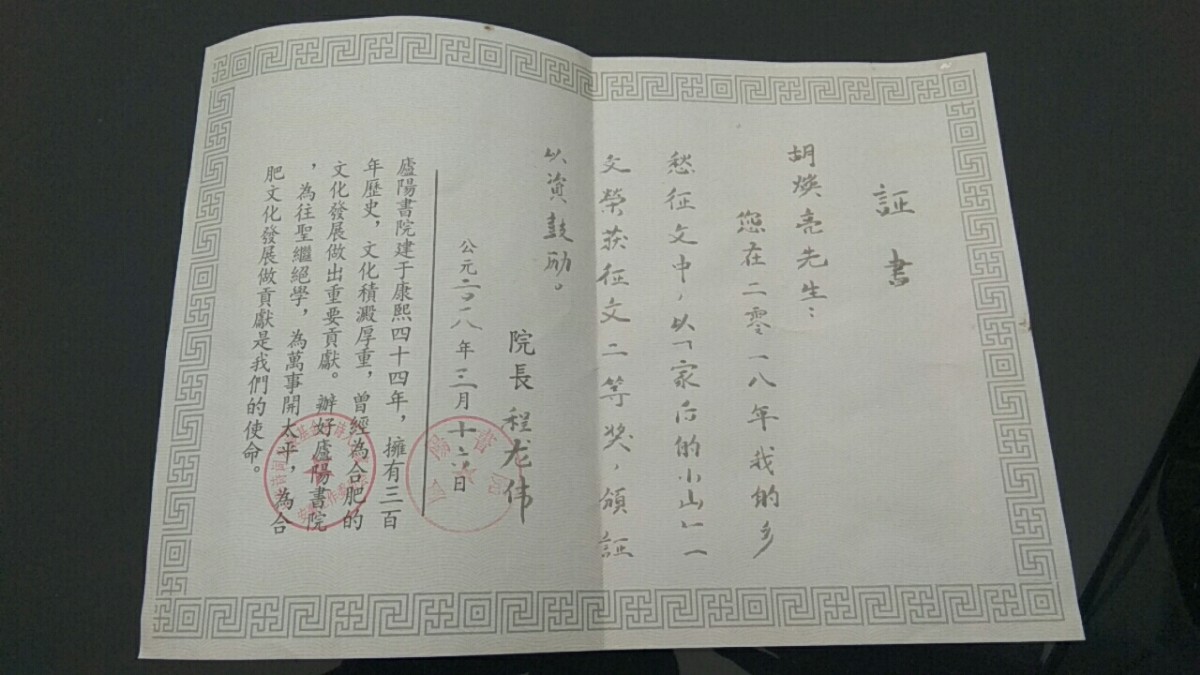 証書
胡焕亮先生：
您在二零一八年我的乡
愁征文中，以「家后的小山」一
文榮获征文二等奖，頒証
以資鼓励。
院長 程龙伟
公元二〇一八年三月十六日
廬陽書院建于康熙四十四年，擁有三百
年歷史，文化積澱厚重，曾經為合肥的
文化發展做出重要貢獻。辦好廬陽書院
，為往聖繼絕學，為萬事開太平，為合
肥文化發展做貢獻是我們的使命。